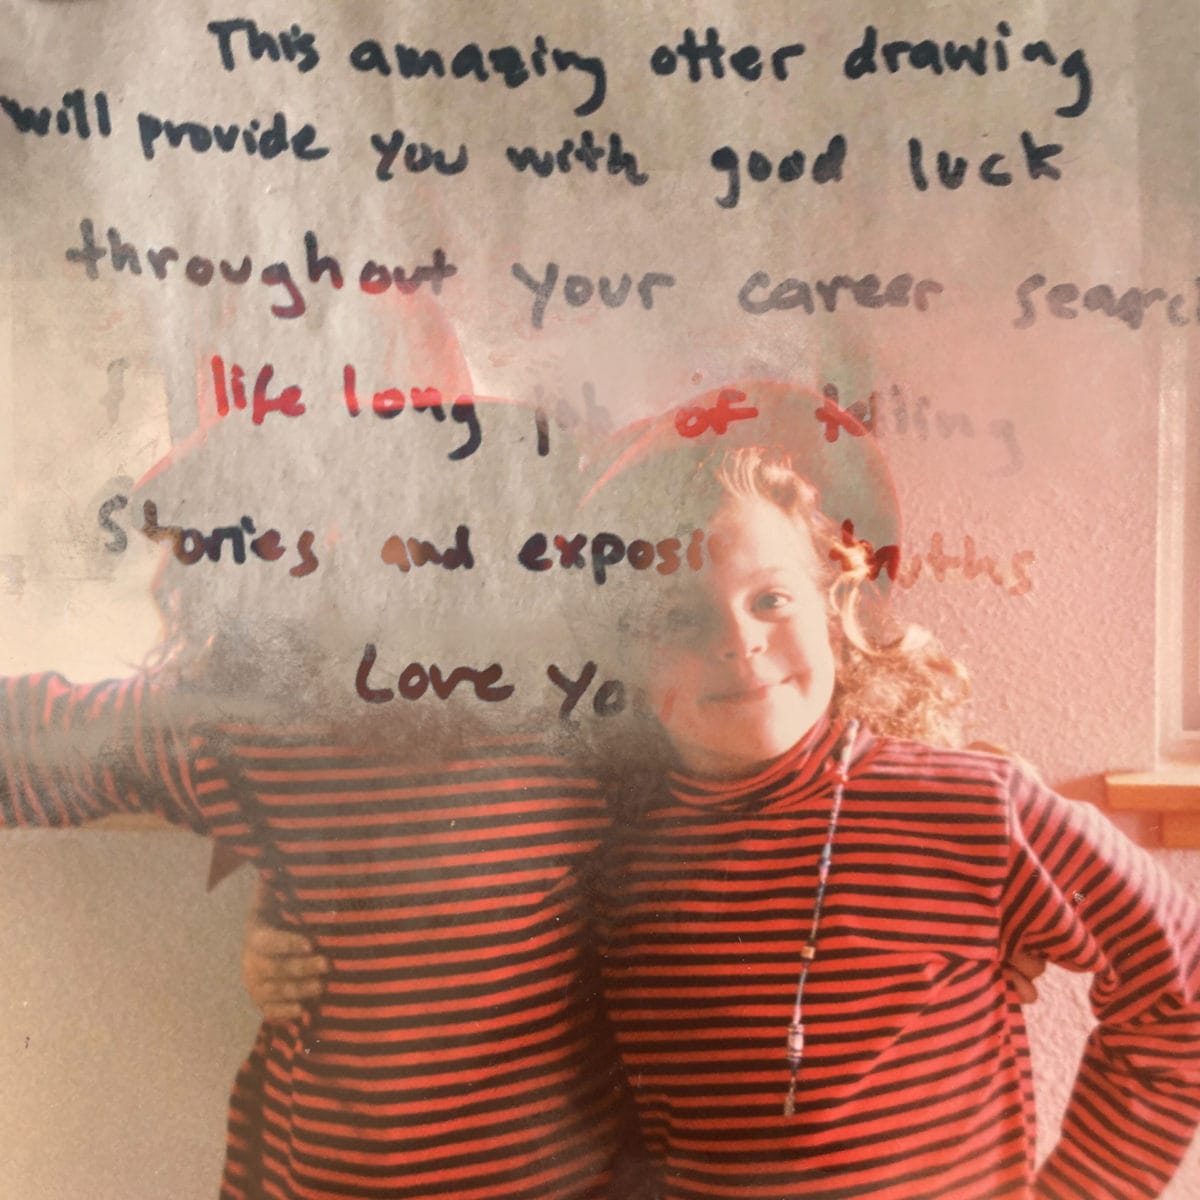 This amazing otter drawing
will provide you with good luck
throughout your career search
life long job of telling
Stories and exposing truths
Love you